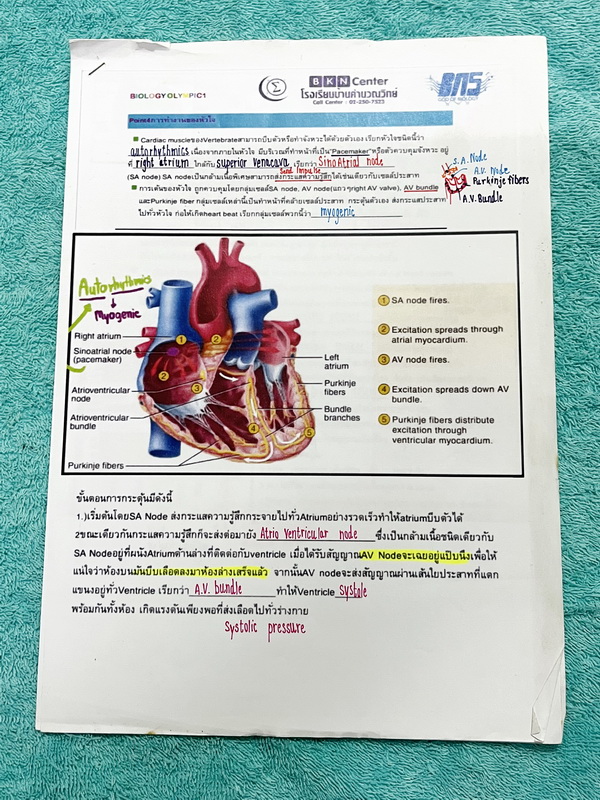 BIOLOGY OLYMPIC1
Σ
BKN Center
โรงเรียนบ้านคำนวณวิทย์
Call Center : 02-250-7323
BNS
GOD OF BIOLOGY
Point4การทำงานของหัวใจ
Cardiac muscleของVertebrateสามารถบีบตัวหรือกำจังหวะได้ด้วยตัวเอง เรียกหัวใจชนิดนี้ว่า
autorhythmics เนื่องจากภายในหัวใจ มีบริเวณที่ทำหน้าที่เป็น"Pacemaker"หรือตัวควบคุมจังหวะ อยู่
ที่ right atrium ใกล้กับ superior venacava เรียกว่า SinoAtrial node
send impulse
(SA node) SA nodeเป็นกล้ามเนื้อพิเศษสามารถส่งกระแสความรู้สึกได้เช่นเดียวกับเซลล์ประสาท
การเต้นของหัวใจ ถูกควบคุมโดยกลุ่มเซลล์SA node, AV node(แถวๆright AV valve), AV bundle
และPurkinje fiber กลุ่มเซลล์เหล่านี้เป็นทำหน้าที่คล้ายเซลล์ประสาท กระตุ้นตัวเอง ส่งกระแสประสาท
ไปทั่วหัวใจ ก่อให้เกิดheart beat เรียกกลุ่มเซลล์พวกนี้ว่า myogenic
S.A. Node
A.V. Node
Purkinje fibers
A.V. Bundle
Autorhythmics
Myogenic
Right atrium
Sinoatrial node
(pacemaker)
Atrioventricular
node
Atrioventricular
bundle
Purkinje fibers
Left
atrium
Purkinje
fibers
Bundle
branches
1 2 2 3 4 5
1 SA node fires.
2 Excitation spreads through
atrial myocardium.
3 AV node fires.
4 Excitation spreads down AV
bundle.
5 Purkinje fibers distribute
excitation through
ventricular myocardium.
ขั้นตอนการกระตุ้นมีดังนี้
1.)เริ่มต้นโดยSA Node ส่งกระแสความรู้สึกกระจายไปทั่วAtriumอย่างรวดเร็วทำให้atriumบีบตัวได้
2ขณะเดียวกันกระแสความรู้สึกก็จะส่งต่อมายัง Atrio ventricular node ซึ่งเป็นกล้ามเนื้อชนิดเดียวกับ
SA Nodeอยู่ที่ผนังAtriumด้านล่างที่ติดต่อกับventricle เมื่อได้รับสัญญาณAV Nodeจะเฉยอยู่แป๊บนึงเพื่อให้
แน่ใจว่าห้องบนมันบีบเลือดลงมาห้องล่างเสร็จแล้ว จากนั้นAV nodeจะส่งสัญญาณผ่านเส้นใยประสาทที่แตก
แขนงอยู่ทั่วVentricle เรียกว่า A.V. bundle ทำให้Ventricle systole
พร้อมกันทั้งห้อง เกิดแรงดันเพียงพอที่ส่งเลือดไปทั่วร่างกาย
Systolic pressure